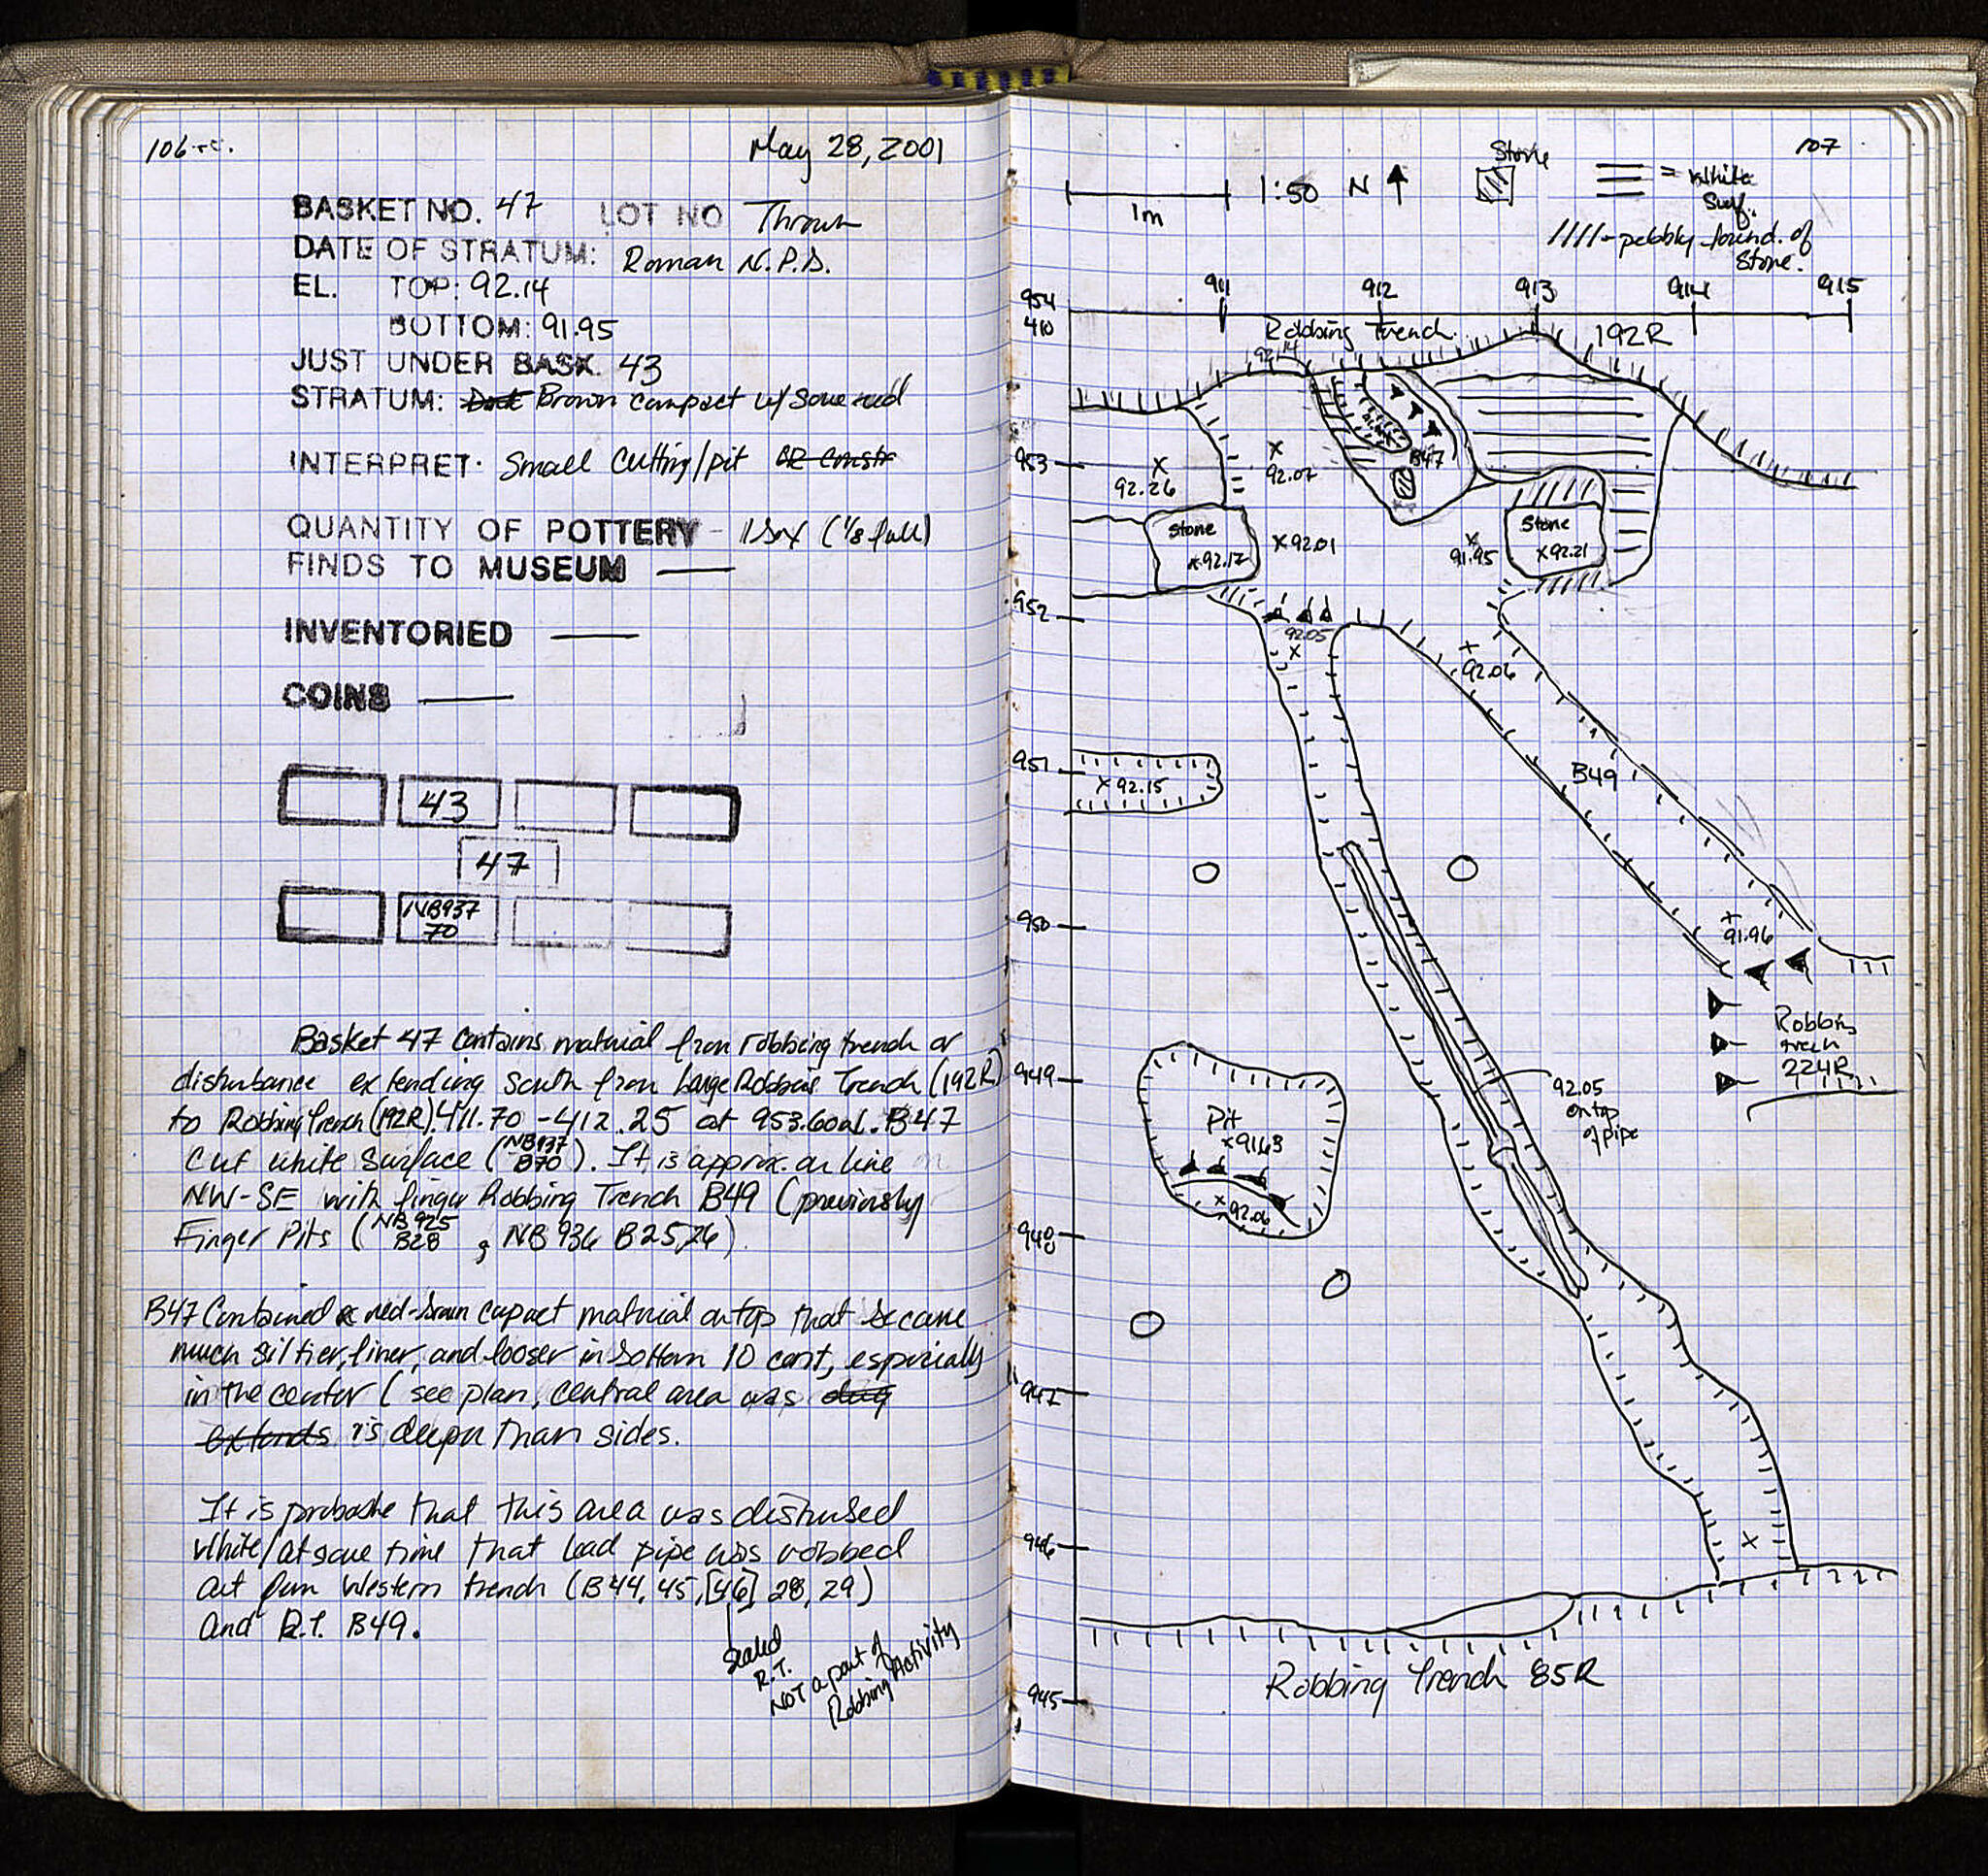 106
May 28, 2001
BASKET NO. 47 LOT NO Thrown
DATE OF STRATUM: Roman N.P.D.
EL. TOP: 92.14
BOTTOM: 91.95
JUST UNDER BASK. 43
STRATUM: Dark Brown compact w/ some red
INTERPRET. Small Cutting/pit OR constr
QUANTITY OF POTTERY - 1 box (1/8 full)
FINDS TO MUSEUM —
INVENTORIED —
COINS —
43
47
NB937
70
Basket 47 contains material from robbing trench or
disturbance extending south from Large Robbing Trench (192R)
to Robbing Trench (192R). 411.70 - 412.25 at 953.60 B47
cut white surface (NB937 B70). It is approx. on line
NW-SE with finger Robbing Trench B49 (previously
Finger Pits (NB925 B28, NB936 B25,26).
B47 Contained red-brown compact material on top that became
much siltier, finer, and looser in bottom 10 cent, especially
in the center (see plan, central area was dug
extends is deeper than sides.
It is probable that this area was disturbed
while/at same time that lead pipe was robbed
out from Western trench (B44, 45, [46] 28, 29)
and R.T. B49.
Sealed
R.T.
NOT a part of
Robbing Activity
107
1m
1:50 N
Stone
= White
Surf.
//// - pebbly found. of
Stone.
911 912 913 914 915
954
410
Robbing Trench 192R
92.14
B47
953
92.26
92.07
Stone
x92.17
x92.01
91.95
Stone
x92.21
952
92.05
92.06
951
x92.15
B49
950
91.96
Robbing
trench
224R
949
92.05
on top
of pipe
Pit
x91.63
x92.06
948
947
946
945
Robbing Trench 85R